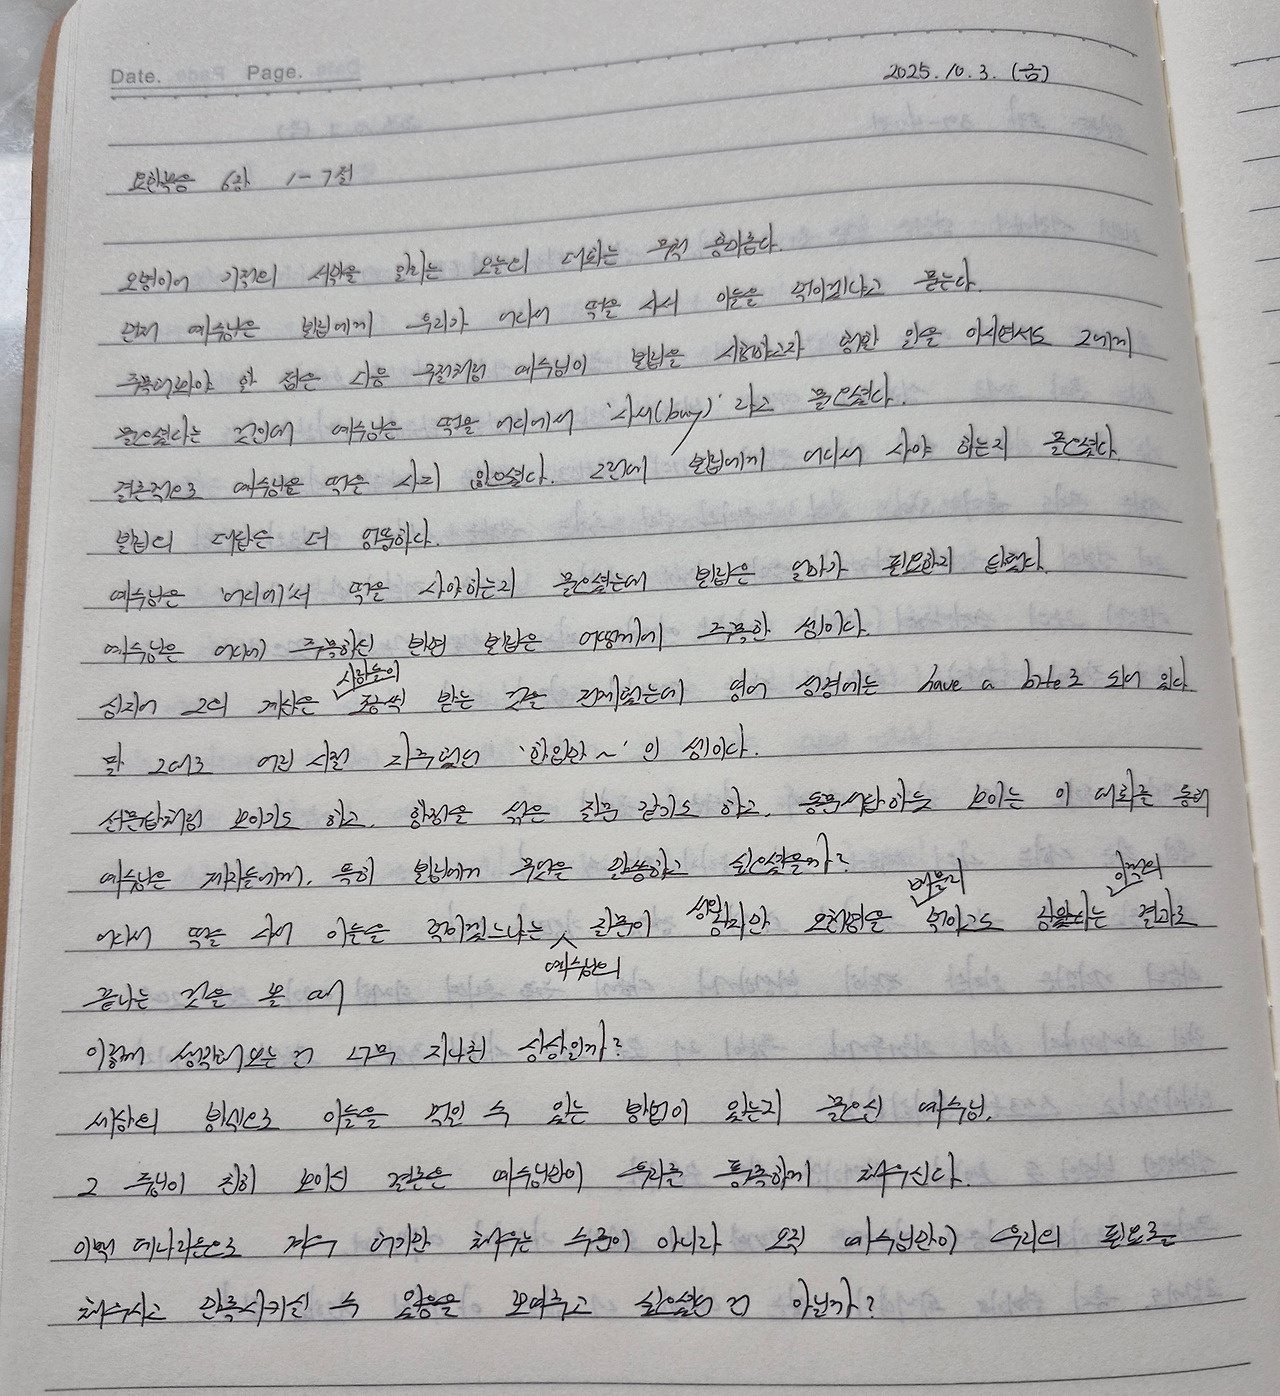 Date. Page.
2025. 10. 3. (금)
요한복음 6장 1-7절
오병이어 기적의 시작을 알리는 오늘의 대화는 무척 흥미롭다.
먼저 예수님은 빌립에게 우리가 어디서 떡을 사서 이들을 먹이겠냐고 묻는다.
주목해봐야 할 점은 다음 구절처럼 예수님이 빌립을 시험하고자 행할 일을 아시면서도 그에게
물으셨다는 것인데 예수님은 떡을 어디에서 '사서(buy)' 라고 물으셨다.
결론적으로 예수님은 떡을 사지 않으셨다. 그런데 빌립에게 어디서 사야 하는지 물으셨다.
빌립의 대답은 더 엉뚱하다.
예수님은 '어디에'서 떡을 사야하는지 물으셨는데 빌립은 얼마가 필요한지 답했다.
예수님은 어디에 주목하신 반면 빌립은 어떻게에 주목한 셈이다.
심지어 그의 계산은 사람들이 조금씩 받는 것을 전제했는데 영어 성경에는 have a bite로 되어 있다
말 그대로 어린 시절 자주했던 '한입만~' 인 셈이다.
선문답처럼 보이기도 하고, 함정을 섞은 질문 같기도 하고, 동문서답하듯 보이는 이 대화를 통해
예수님은 제자들에게, 특히 빌립에게 무엇을 말씀하고 싶으셨을까?
어디서 떡을 사서 이들을 먹이겠느냐는 예수님의 질문이 성인 남자만 오천명을 배불리 먹이고도 남았다는 이적의 결과로
끝나는 것을 볼 때
이렇게 생각해보는 건 너무 지나친 상상일까?
세상의 방식으로 이들을 먹일 수 있는 방법이 있는지 물으신 예수님.
그 주님이 친히 보이신 결론은 예수님만이 우리를 풍족하게 채우신다.
이백 데나리온으로 겨우 허기만 채우는 수준이 아니라 오직 예수님만이 우리의 필요를
채우시고 만족시키실 수 있음을 보여주고 싶으셨던 건 아닐까?